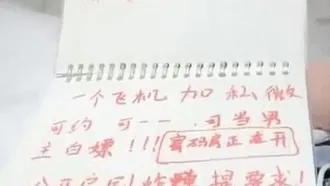 一个飞机 加私微
可约 可一一. 司当男
主白嫖!!! 密码房正在开
提要求!